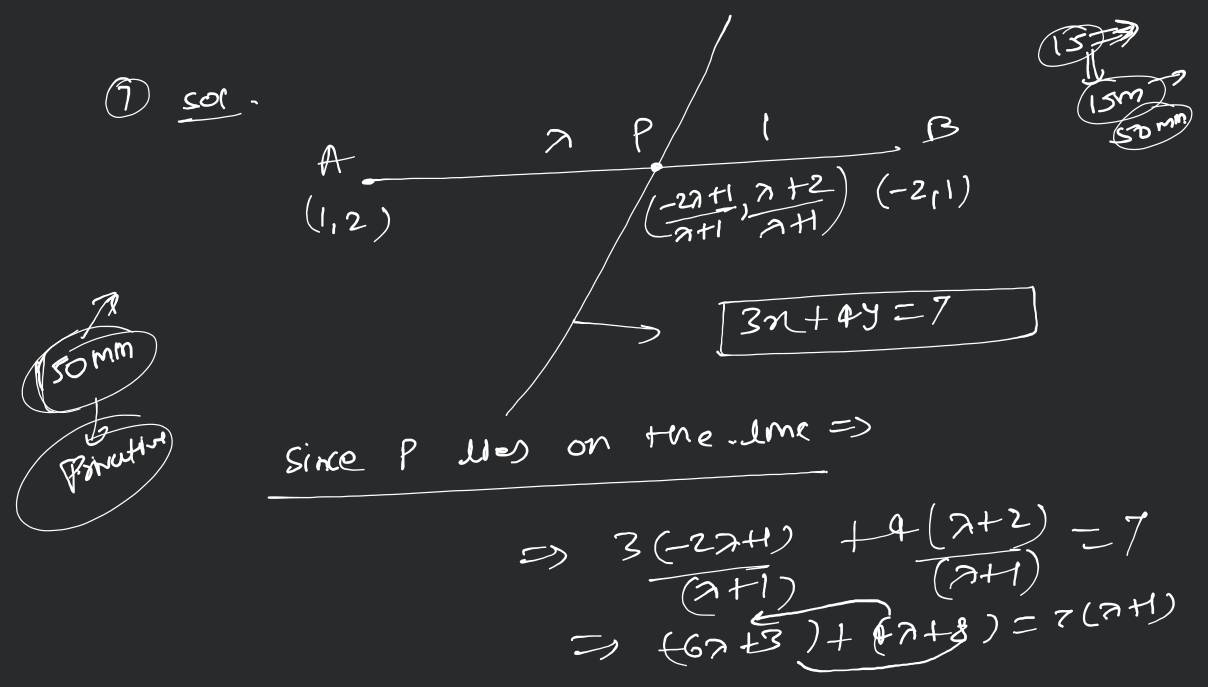 ⑦ sol.
15
15m
50 mm
A λ P 1 B
(1,2) (-2λ+1/λ+1, λ+2/λ+1) (-2,1)
3x+4y=7
50 mm
Since P lies on the line ⇒
⇒ 3(-2λ+1)/(λ+1) + 4(λ+2)/(λ+1) = 7
⇒ (-6λ+3) + (4λ+8) = 7(λ+1)